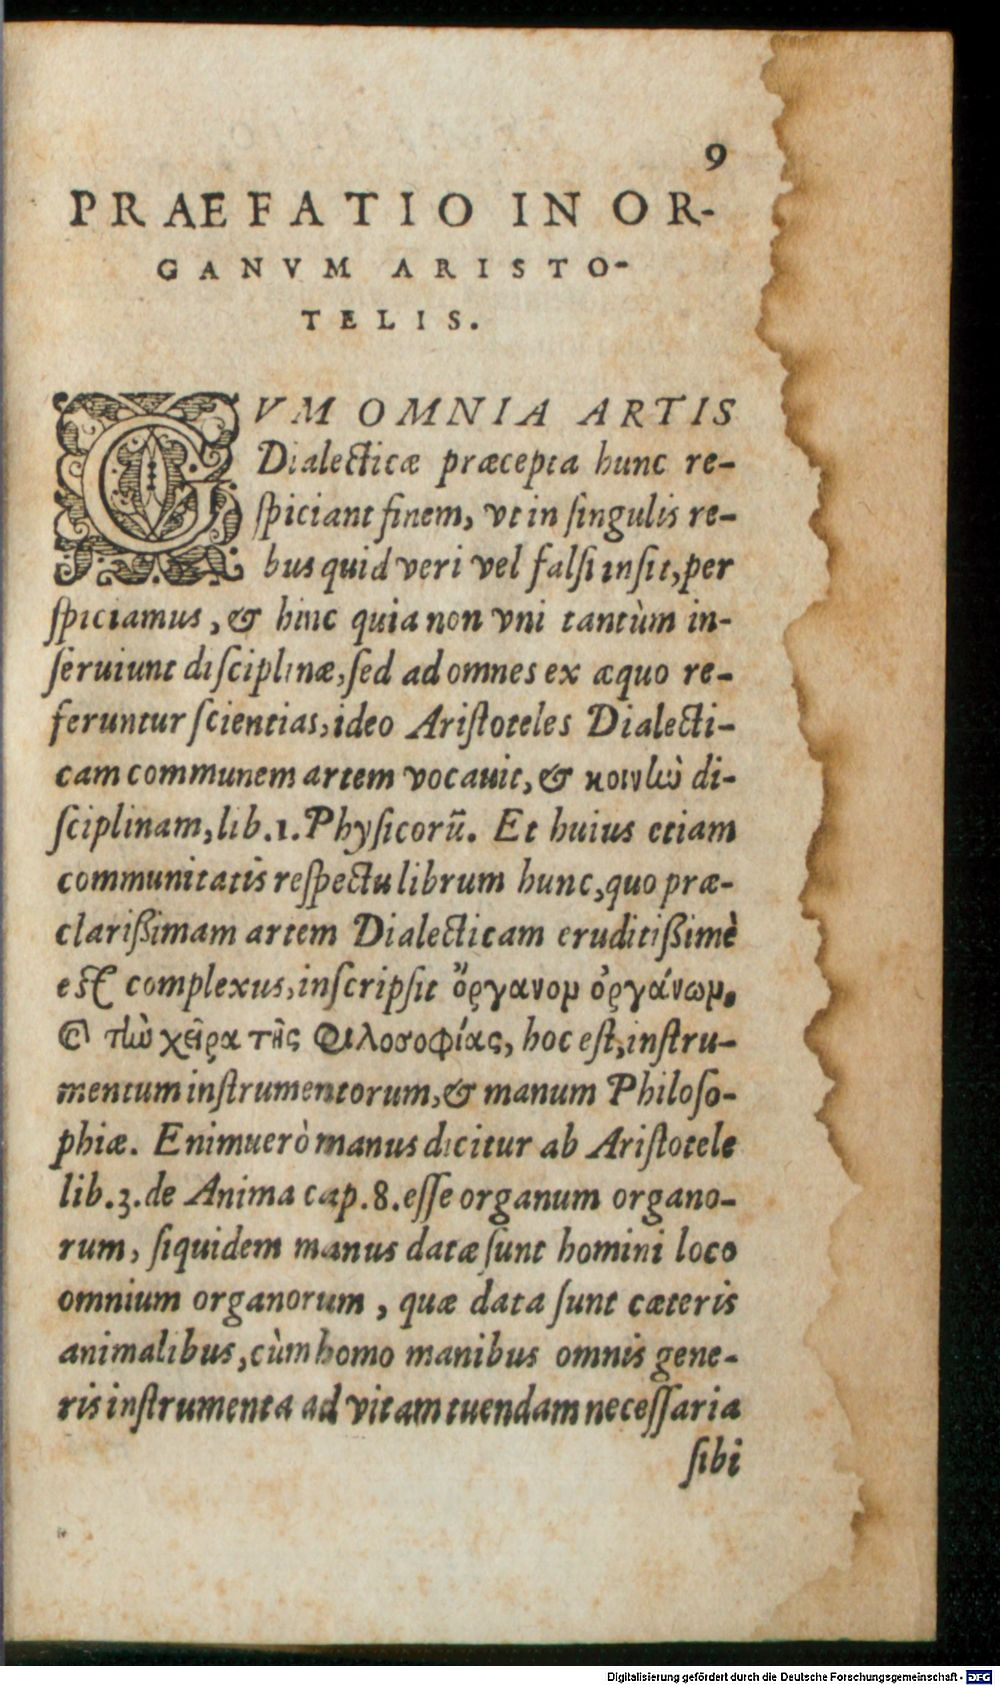 9
PRAEFATIO IN OR-
GANVM ARISTO-
TELIS.
CVM OMNIA ARTIS
Dialecticæ præcepta hunc re-
ſpiciant finem, vt in ſingulis re-
bus quid veri vel falſi inſit, per
ſpiciamus, & hinc quia non vni tantùm in-
ſeruiunt diſciplinæ, ſed ad omnes ex æquo re-
feruntur ſcientias, ideo Ariſtoteles Dialecti-
cam communem artem vocauit, & κοινὼ di-
ſciplinam, lib.1. Phyſicorū. Et huius etiam
communitatis reſpectu librum hunc, quo præ-
clariſſimam artem Dialecticam eruditiſſimè
eſt complexus, inſcripſit ὄργανομ ὀργάνωμ,
& τὼ χεῖρα τῆς Φιλοσοφίας, hoc eſt, inſtru-
mentum inſtrumentorum, & manum Philoſo-
phiæ. Enimuerò manus dicitur ab Ariſtotele
lib.3. de Anima cap.8. eſſe organum organo-
rum, ſiquidem manus datæ ſunt homini loco
omnium organorum, quæ data ſunt cæteris
animalibus, cùm homo manibus omnis gene-
ris inſtrumenta ad vitam tuendam neceſſaria
ſibi
Digitalisierung gefördert durch die Deutsche Forschungsgemeinschaft - DFG